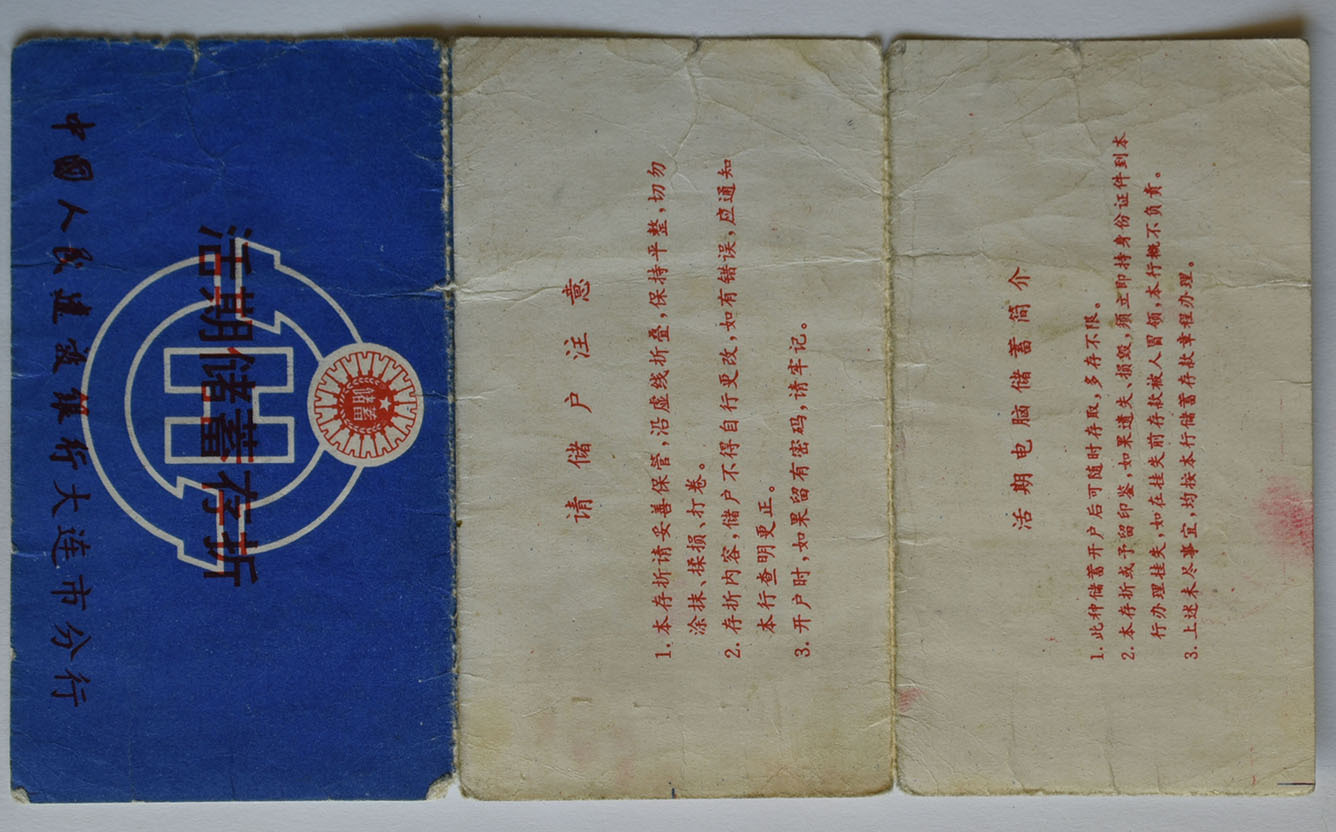 中國人民建设银行大连市分行
活期储蓄存折
储蓄
请储户注意
1. 本存折请妥善保管,沿虚线折叠,保持平整,切勿
涂抹、揉损、打卷。
2. 存折内容,储户不得自行更改,如有错误,应通知
本行查明更正。
3. 开户时,如果留有密码,请牢记。
活期电脑储蓄简介
1. 此种储蓄开户后可随时存取,多存不限。
2. 本存折或予留印鉴,如果遗失、损毁,须立即持身份证件到本
行办理挂失,如在挂失前存款被人冒领,本行概不负责。
3. 上述未尽事宜,均按本行储蓄存款章程办理。